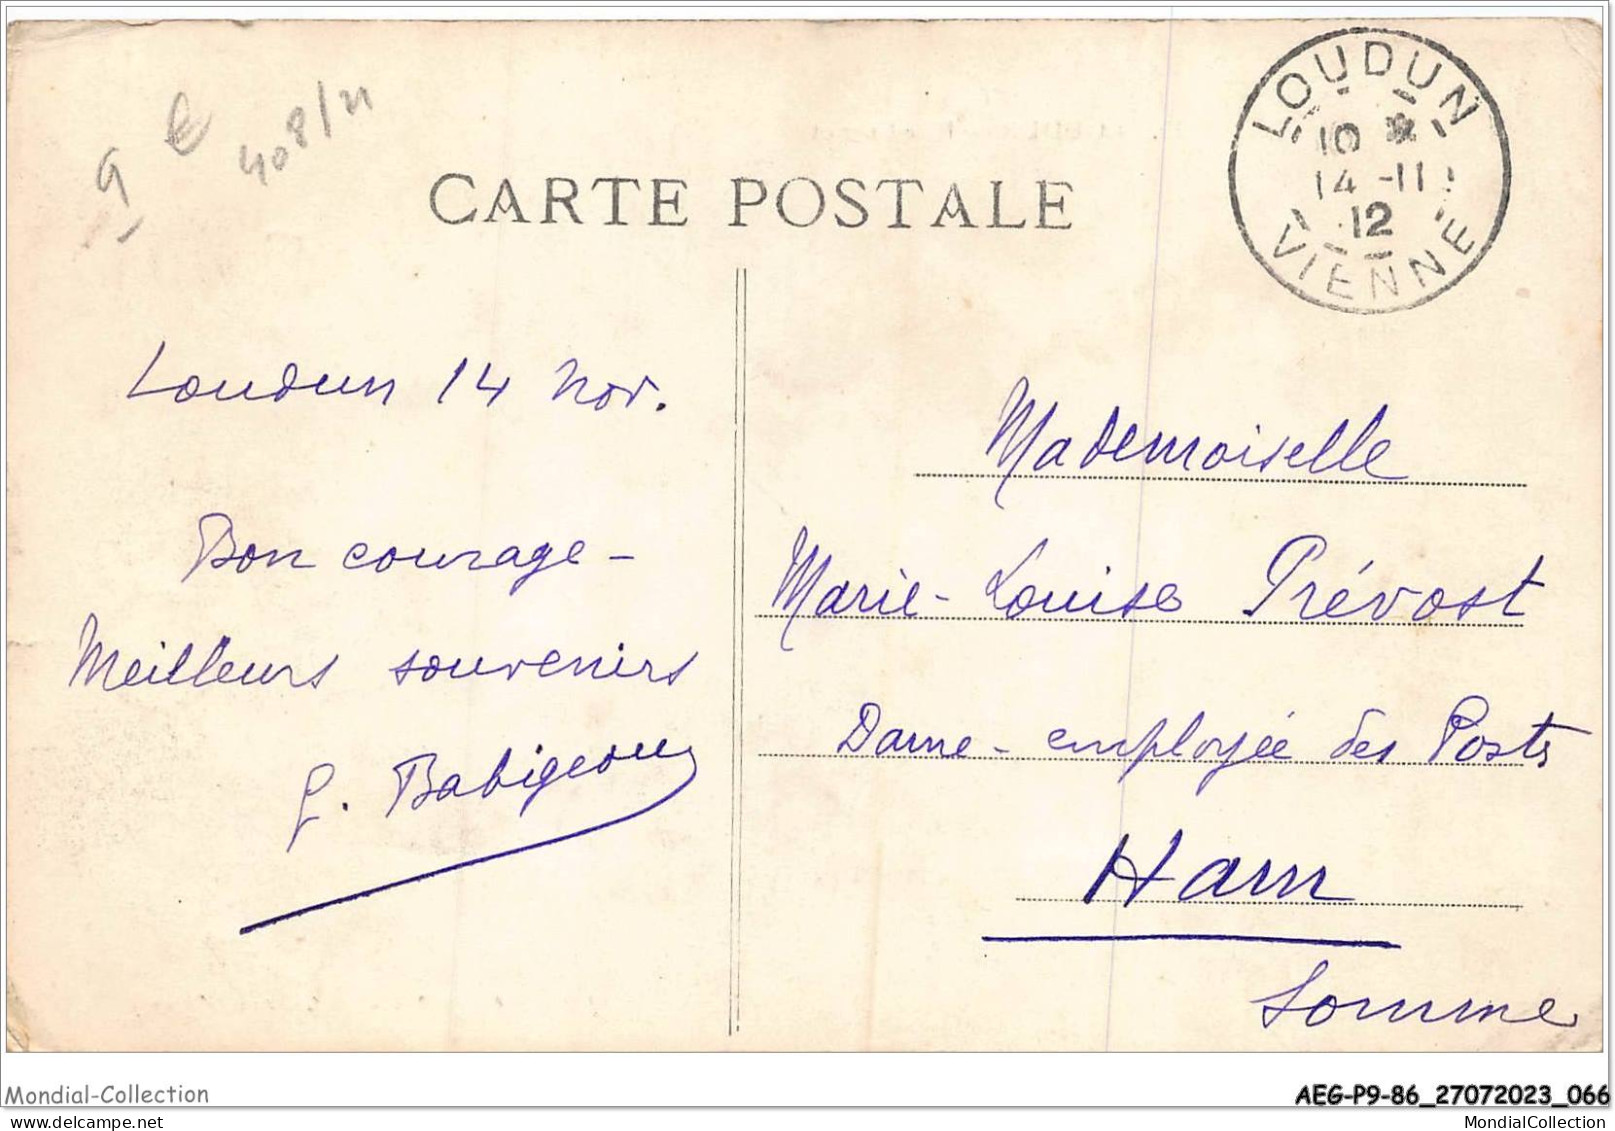 9 €
408/21
CARTE POSTALE
LOUDUN
10
14 -11
12
VIENNE
Loudun 14 Nov.
Bon courage -
Meilleurs souvenirs
Mademoiselle
Marie-Louise Prévost
Dame-employée des Postes
Ham
Somme
Mondial-Collection
AEG-P9-86_27072023_066
MondialCollection